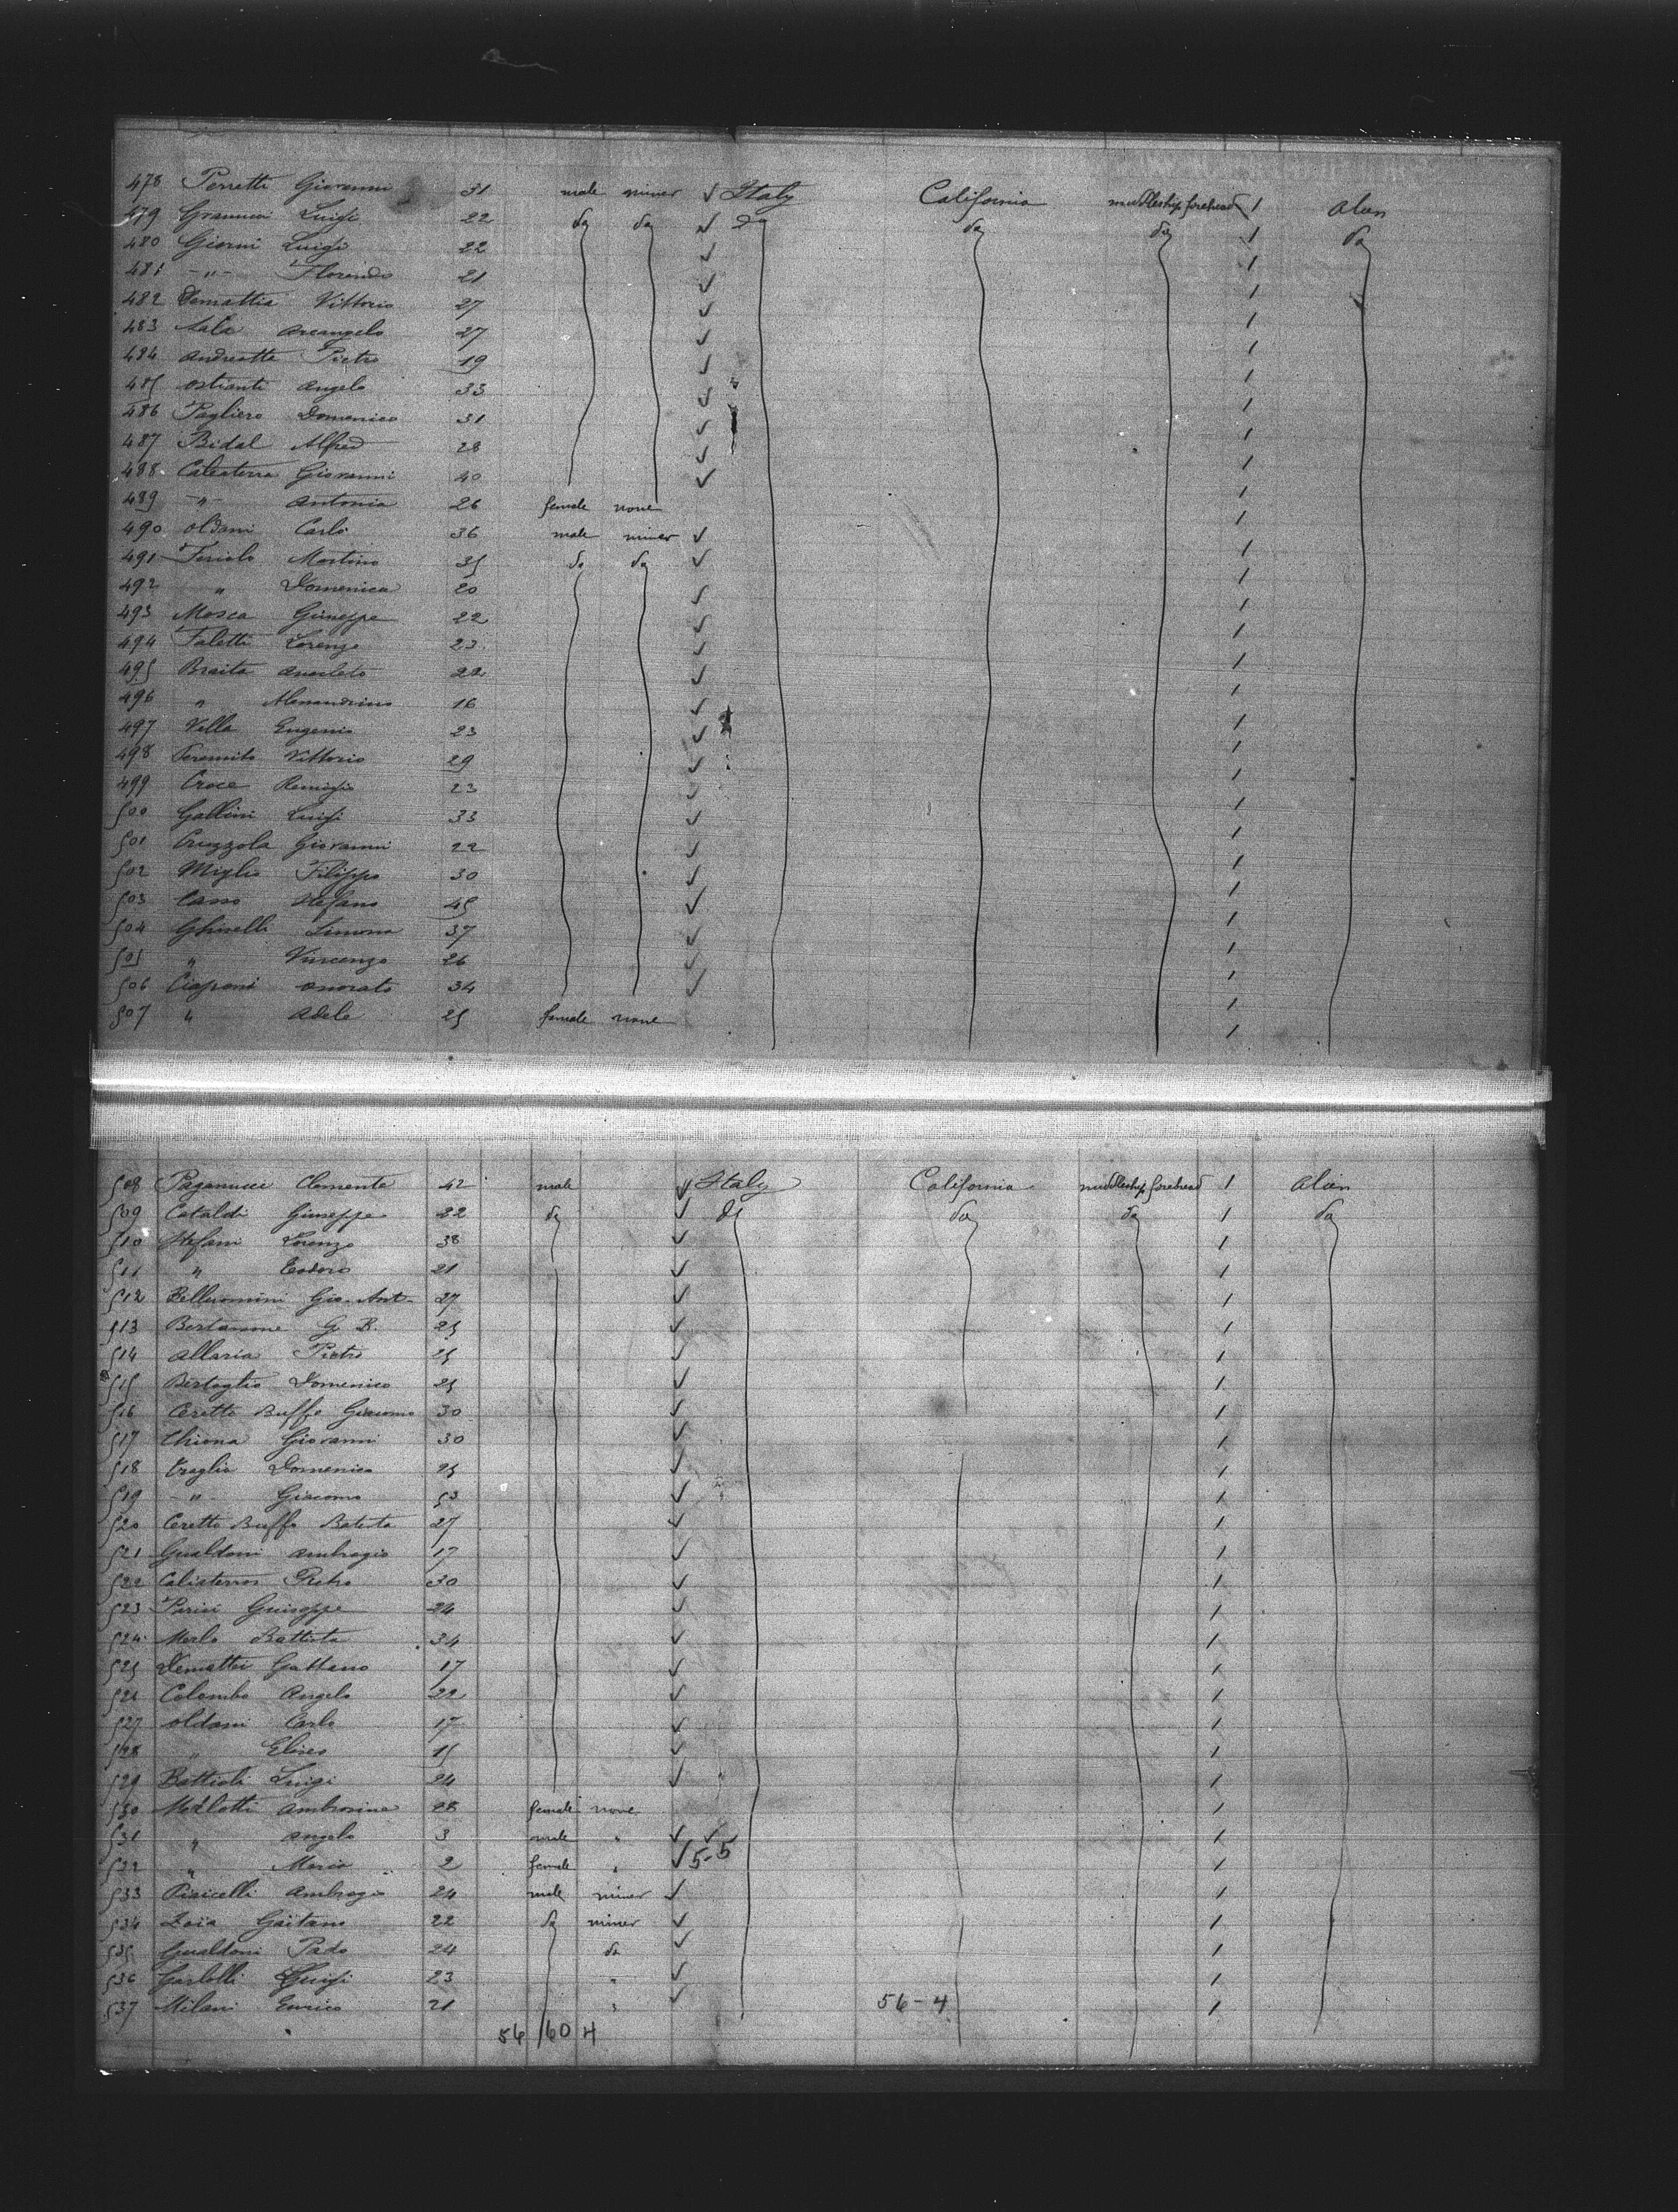 478 Perretti Giovanni 31 male miner ✓ Italy California middleship forehead 1 alien
479 Luigi 22 do do ✓ do do do 1 do
480 Giorni Luigi 22 ✓ 1
481 -"- Florendo 21 ✓ 1
482 Demattia Vittorio 27 ✓ 1
483 Sala Arcangelo 27 ✓ 1
484 Andreatta Pietro 19 ✓ 1
485 Ostianti Angelo 33 ✓ 1
486 Pagliero Domenico 31 ✓ 1
487 Bidal Alfred 28 ✓ 1
488 Calcaterra Giovanni 40 ✓ 1
489 -"- Antonia 26 female none 1
490 Oldani Carlo 36 male miner ✓ 1
491 Feriolo Martino 35 do do ✓ 1
492 " Domenica 20 ✓ 1
493 Mosca Giuseppe 22 ✓ 1
494 Faletti Lorenzo 23 ✓ 1
495 Braita Anacleto 22 ✓ 1
496 " Alessandrino 16 ✓ 1
497 Villa Eugenio 23 ✓ 1
498 Vittorio 29 ✓ 1
499 Croce Remigio 23 ✓ 1
500 Gallini Luigi 33 ✓ 1
501 Cruzzola Giovanni 22 ✓ 1
502 Miglio Filippo 30 ✓ 1
503 Casso Stefano 45 ✓ 1
504 Ghiselli Simona 37 ✓ 1
505 " Vincenzo 26 ✓ 1
506 Ciaponi Onorato 34 ✓ 1
507 " Adele 25 female none 1
508 Paganucci Clemente 42 male ✓ Italy California middleship forehead 1 alien
509 Cataldi Giuseppe 22 do ✓ do do do 1 do
510 Stefani Lorenzo 38 ✓ 1
511 " Teodoro 21 ✓ 1
512 Belluomini Gio. Ant. 27 ✓ 1
513 G. B. 25 ✓ 1
514 Allaria Pietro 25 ✓ 1
515 Bertoglio Domenico 25 ✓ 1
516 Ceretto Buffo Giacomo 30 ✓ 1
517 Chiona Giovanni 30 ✓ 1
518 Domenico 25 ✓ 1
519 -"- Giacomo 53 ✓ 1
520 Ceretto Buffo Batista 27 ✓ 1
521 Gualdoni Ambrogio 17 ✓ 1
522 Pietro 30 ✓ 1
523 Parisi Guiseppe 24 ✓ 1
524 Merlo Battista 34 ✓ 1
525 Demattei Gattano 17 ✓ 1
526 Colombo Angelo 22 ✓ 1
527 Oldani Carlo 17 ✓ 1
528 " Eliseo 15 ✓ 1
529 Battioli Luigi 24 ✓ 1
530 Ambrosina 28 female none 1
531 " Angelo 3 male " ✓ ✓ 1
532 " Maria 2 female " ✓ 5-5 1
533 Piricelli Ambrogio 24 male miner ✓ 1
534 Zoia Gaïtano 22 do miner ✓ 1
535 Gualdoni 24 do ✓ 1
536 Garlotti Luigi 23 " ✓ 1
537 Milani Enrico 21 " ✓ 56-4 1
56 / 60 4